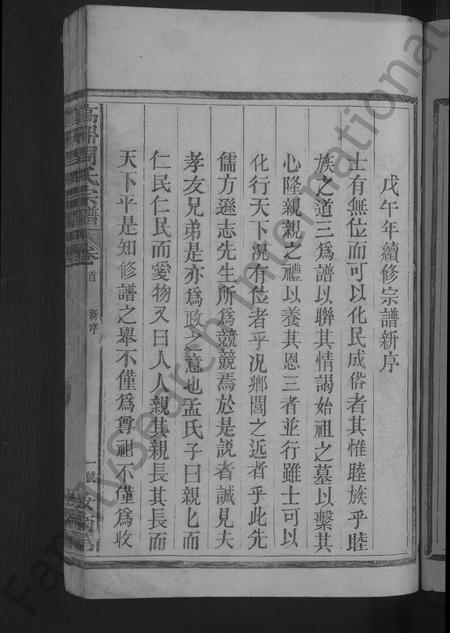 戊午年續修宗譜新序
士有無位而可以化民成俗者其惟睦族乎睦
族之道三為譜以聯其情謁始祖之墓以繫其
心隆親親之禮以養其恩三者並行雖士可以
化行天下況有位者乎況鄉閭之近者乎此先
儒方遜志先生所為兢兢焉於是說者誠見夫
孝友兄弟是亦為政之意也孟氏子曰親親而
仁民仁民而愛物又曰人人親其親長其長而
天下平是知修譜之舉不僅為尊祖不僅為收
周氏宗譜
卷首
新序
一號
FamilySearch International